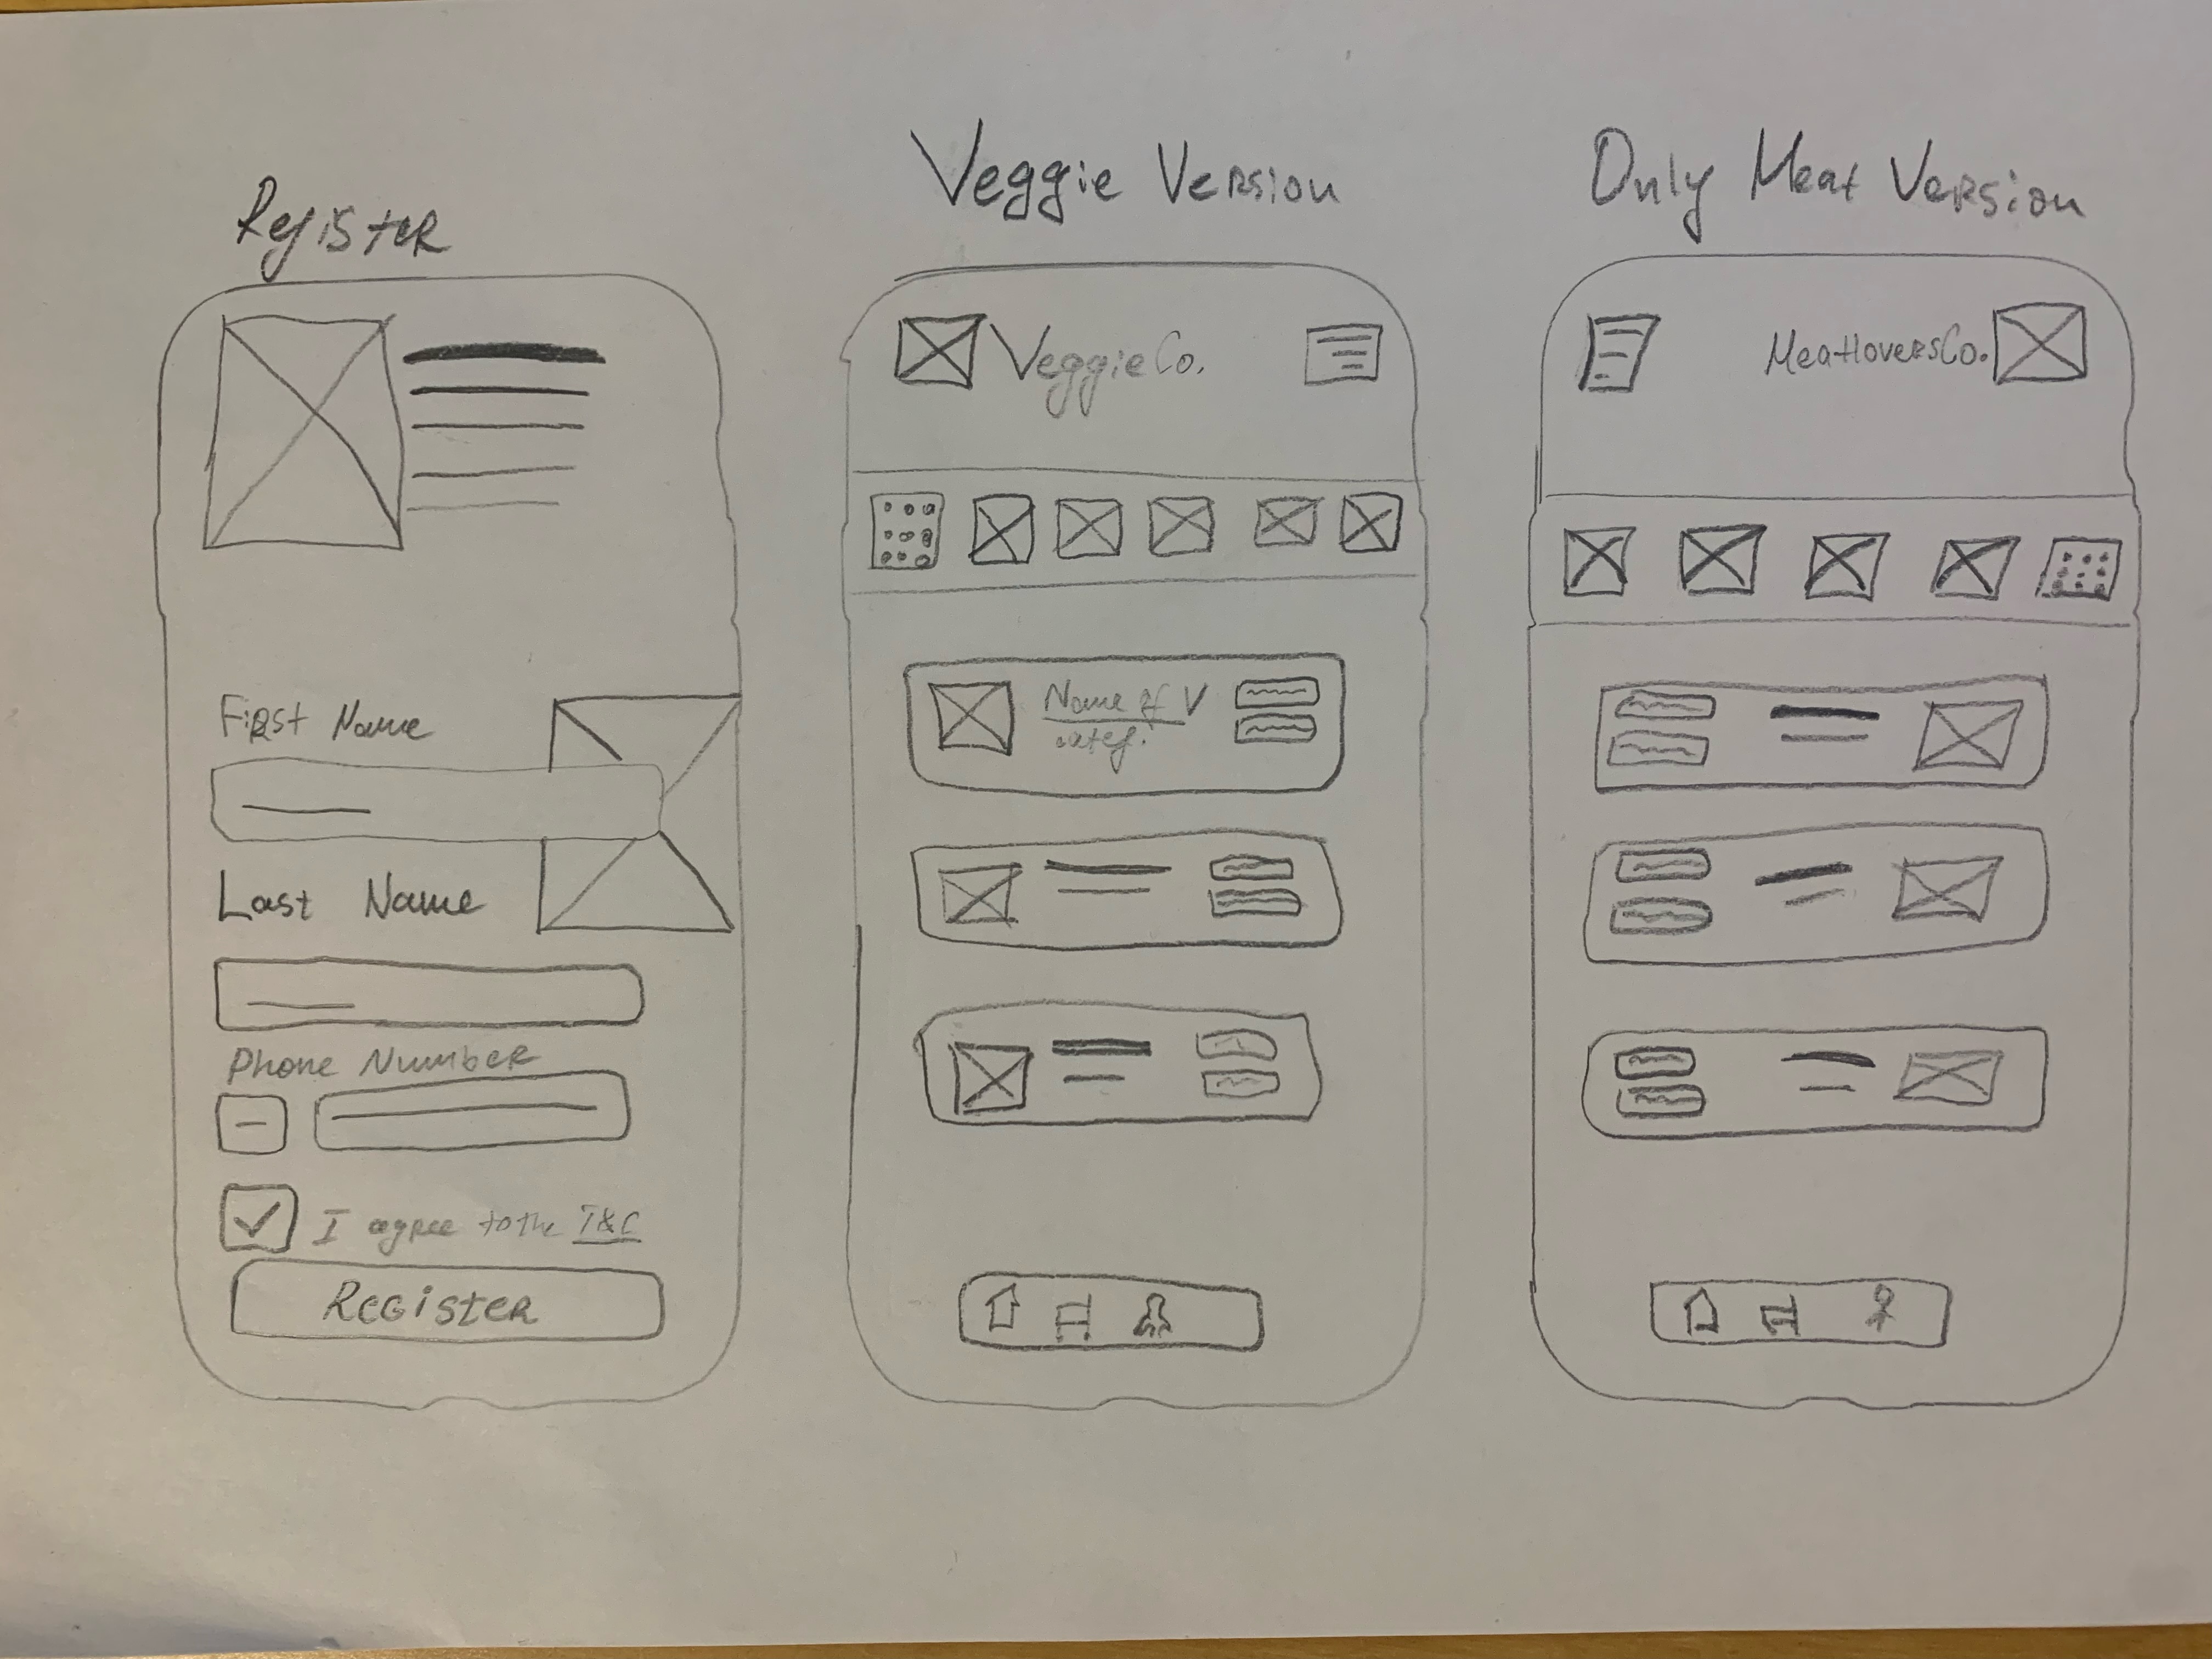 Register
First Name
Last Name
Phone Number
I agree to the T&C
Register
Veggie Version
VeggieCo.
Name of V
Only Meat Version
MeatloversCo.